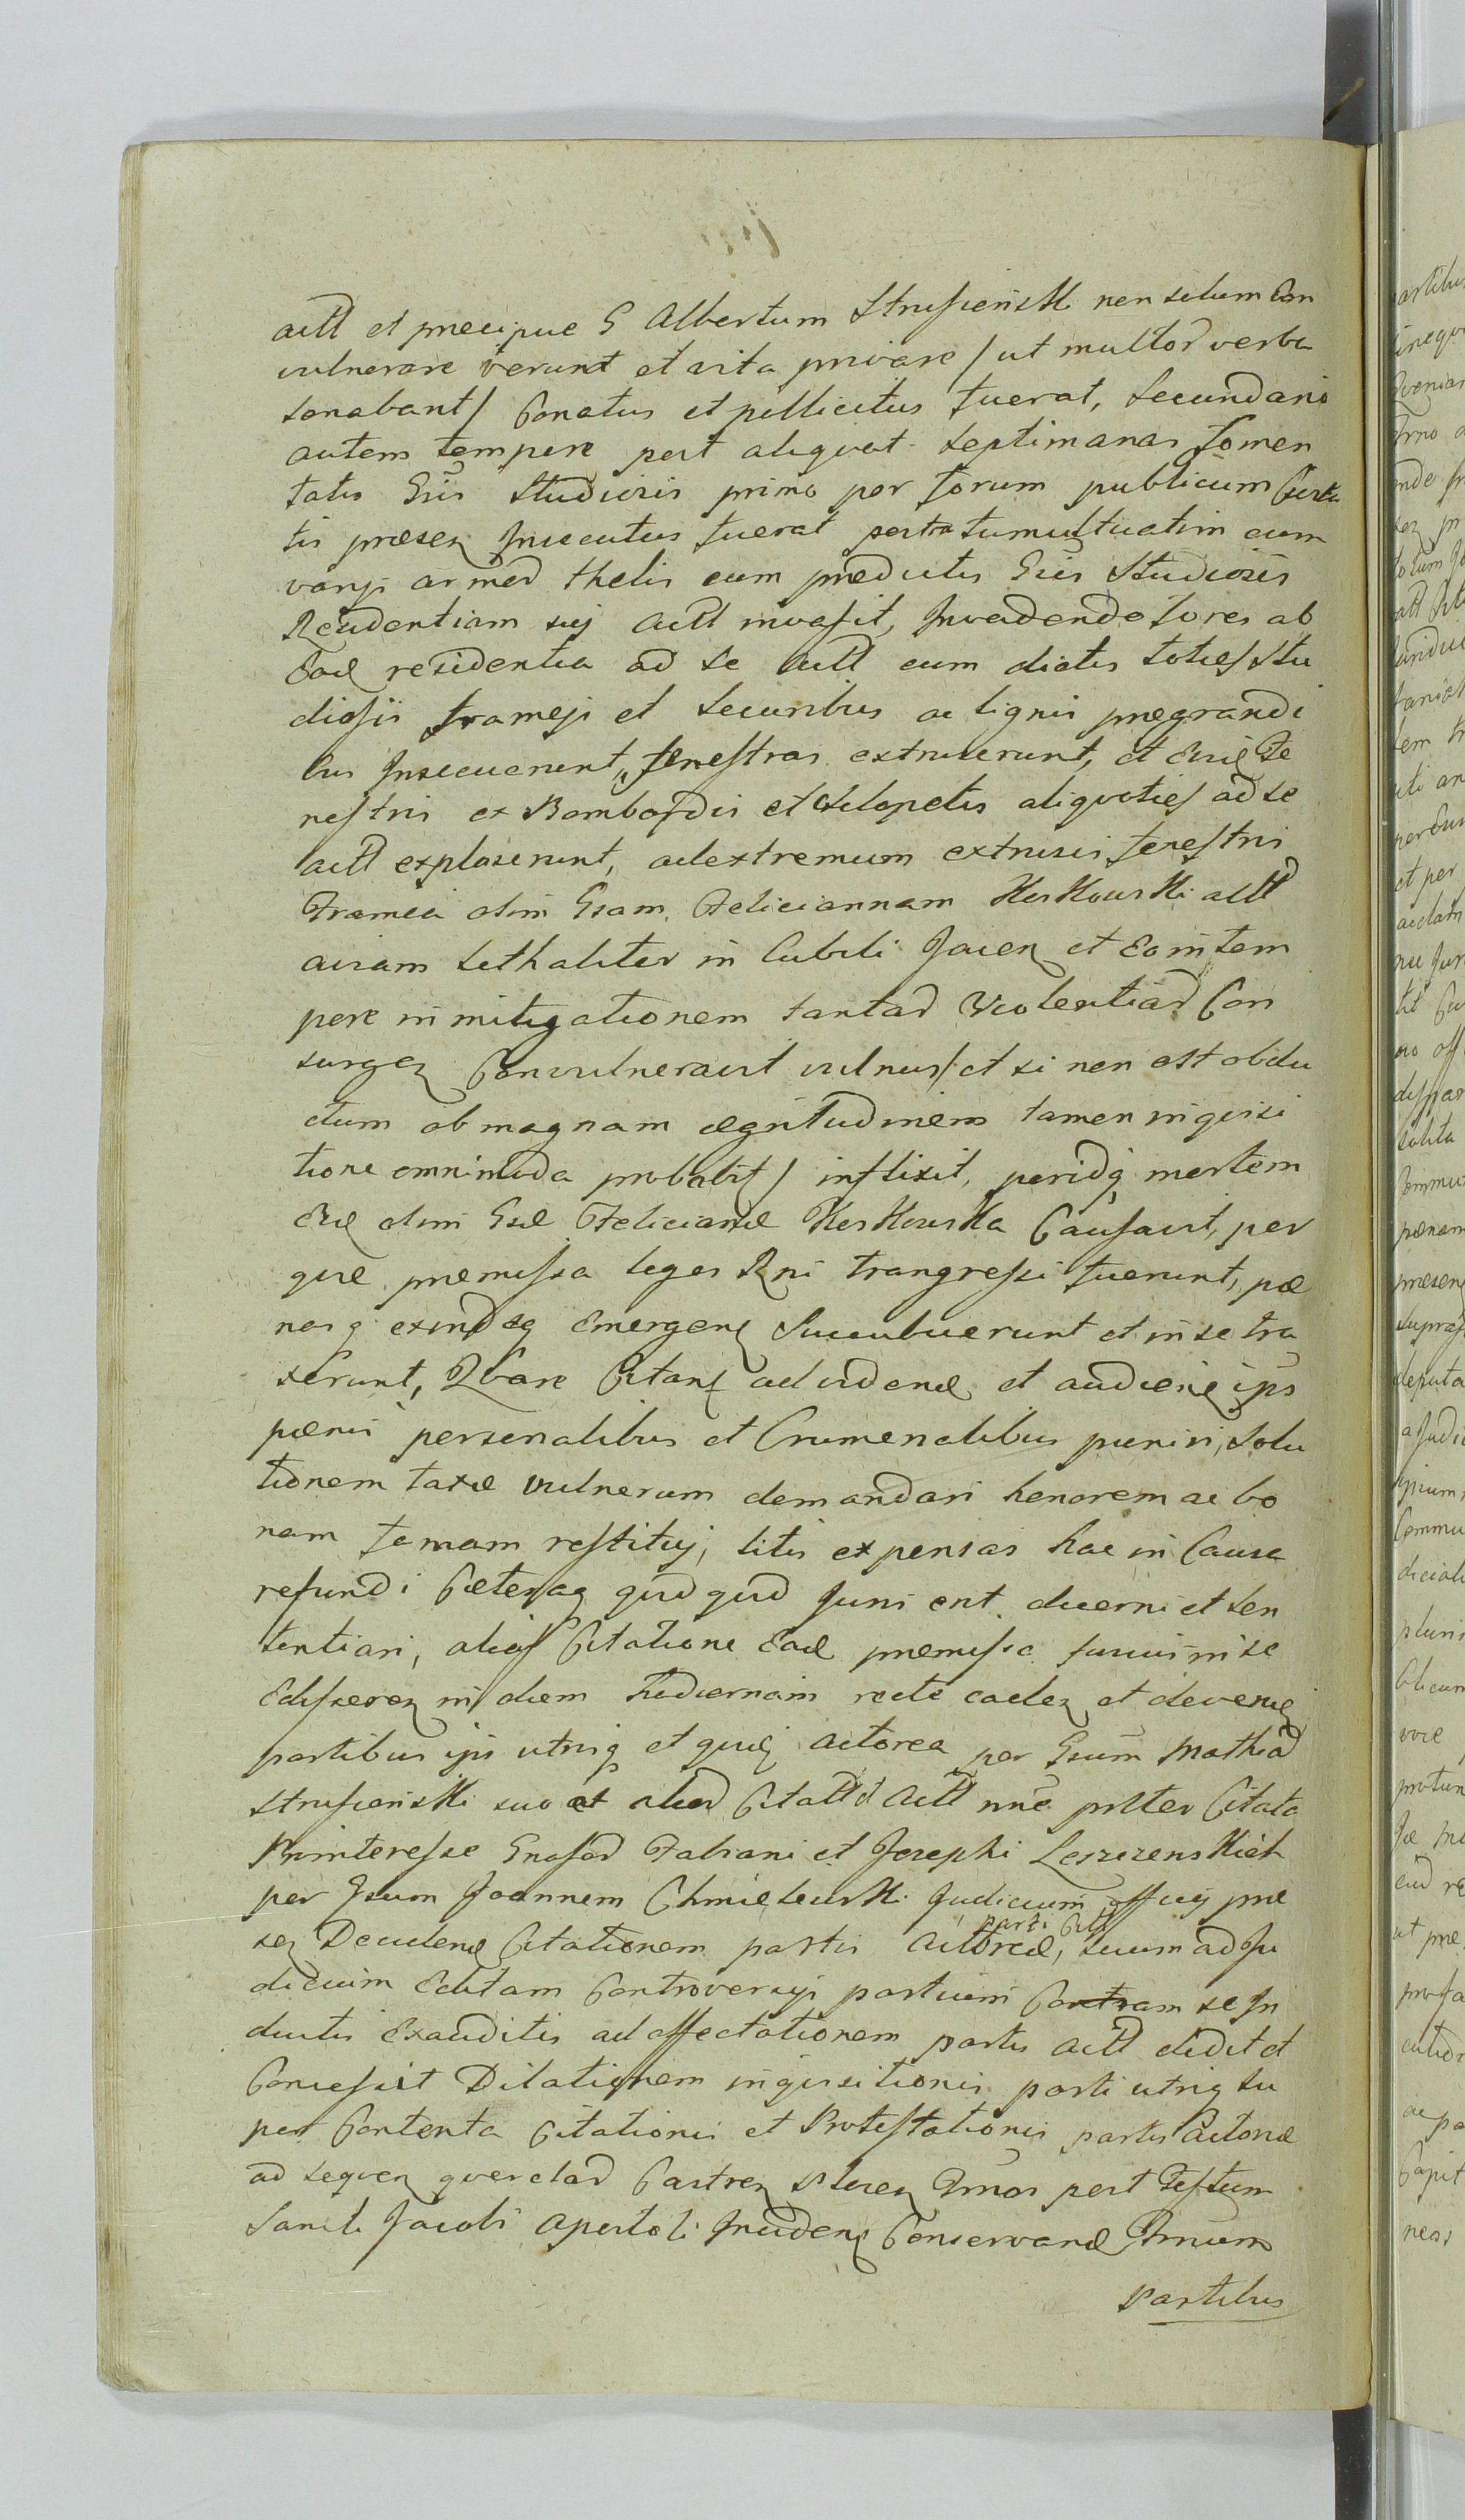 actt et præcipue G Albertum Strusieński non solum con
vulnerare verum et vita privare / ut multor verba
sonabant / Conatus et pollicitus fuerat, Secundario
autem tempore post aliquot septimanas fomen
tatis Gsis Studiosis primo per forum publicum
tis præsen Insecutus fuerat postea tumultuatim cum
varys armor thelis cum prædictis Gsis Studiosis
Residentiam suj Actt invasit, Invadendo fores ab
Ead residentia ad se Actt cum dictis toties Stu
diosis frameis et Securibus ac lignis prægrandi
bus Insecuerunt, fenestras extruserunt, et Eisd Fe
nestris ex Bombardis et Sclopetis aliquoties ad se
actt exploserunt, ad extremum extrusis fenestris
Framea olim Gsam Feliciannam Koskowski actt
aviam lethaliter in Cubili Jacen et Eo in tem
pore in mitigationem tantar Violentiar Con
surgen Convulneravit vulnus / et si non est obdu
ctum ob magnam ægritudinem tamen inquisi
tione omnimoda probabit / inflixit, peridq mortem
Eid olim Gsæ Felicianæ Koskowska Causavit, per
quæ præmissa leges Rni trangressi fuerunt, pœ
nasq exindeq Emergen Succubuerunt et in se tra
xerunt, Qvare Citant ad viden et audien ips
pœnis personalibus et Criminalibus puniri, Solu
tionem taxæ vulnerum demandari honorem ac bo
nam famam restituj, litis expensas hac in Causa
refundi Cæteraq quidquid Juris erit decerni et sen
tentiari, alias Citatione Ead præmissa fusius in se
Edisseren in diem hodiernam recte caden et deven
partibus ips utrisq et quid actorea per Gsum Mathiam
Strusieński suo et alior Citattor Actt nunc pstter Citata
Pro interesse Gnosor Fabiani et Josephi Leszczenskich
per Gsum Joannem Chmielewski Judicium officij præ
sen Deciden Citationem partis actoreæ, parti Citt suum ad Ju
dicium Editam Controversijs partium Contram se In
ductis Exauditis ad affectationem partis actt dedit et
Concessit Dilationem inquisitionis parti utriq su
per Contenta Citationis et Protestationis partis Actoreæ
ad sequen querelar Castren Ploscen Trnos post Festum
Sancti Jacobi Apostoli Inciden Conservand Trnum
Partibus